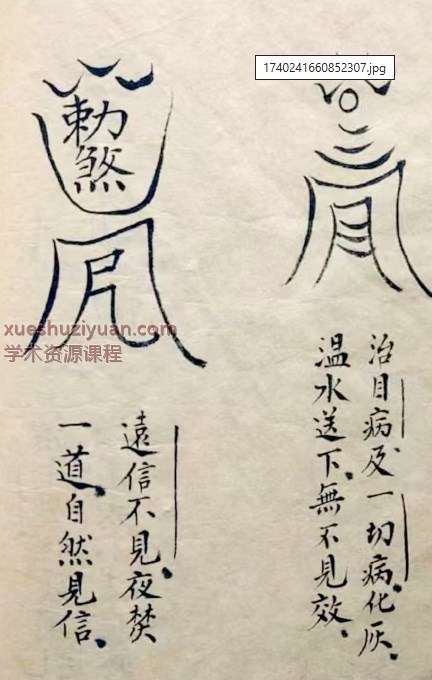 1740241660852307.jpg
勅
煞
治目病及一切病化灰
温水送下無不見效
遠信不見夜焚
一道自然見信
xueshuziyuan.com
学术资源课程